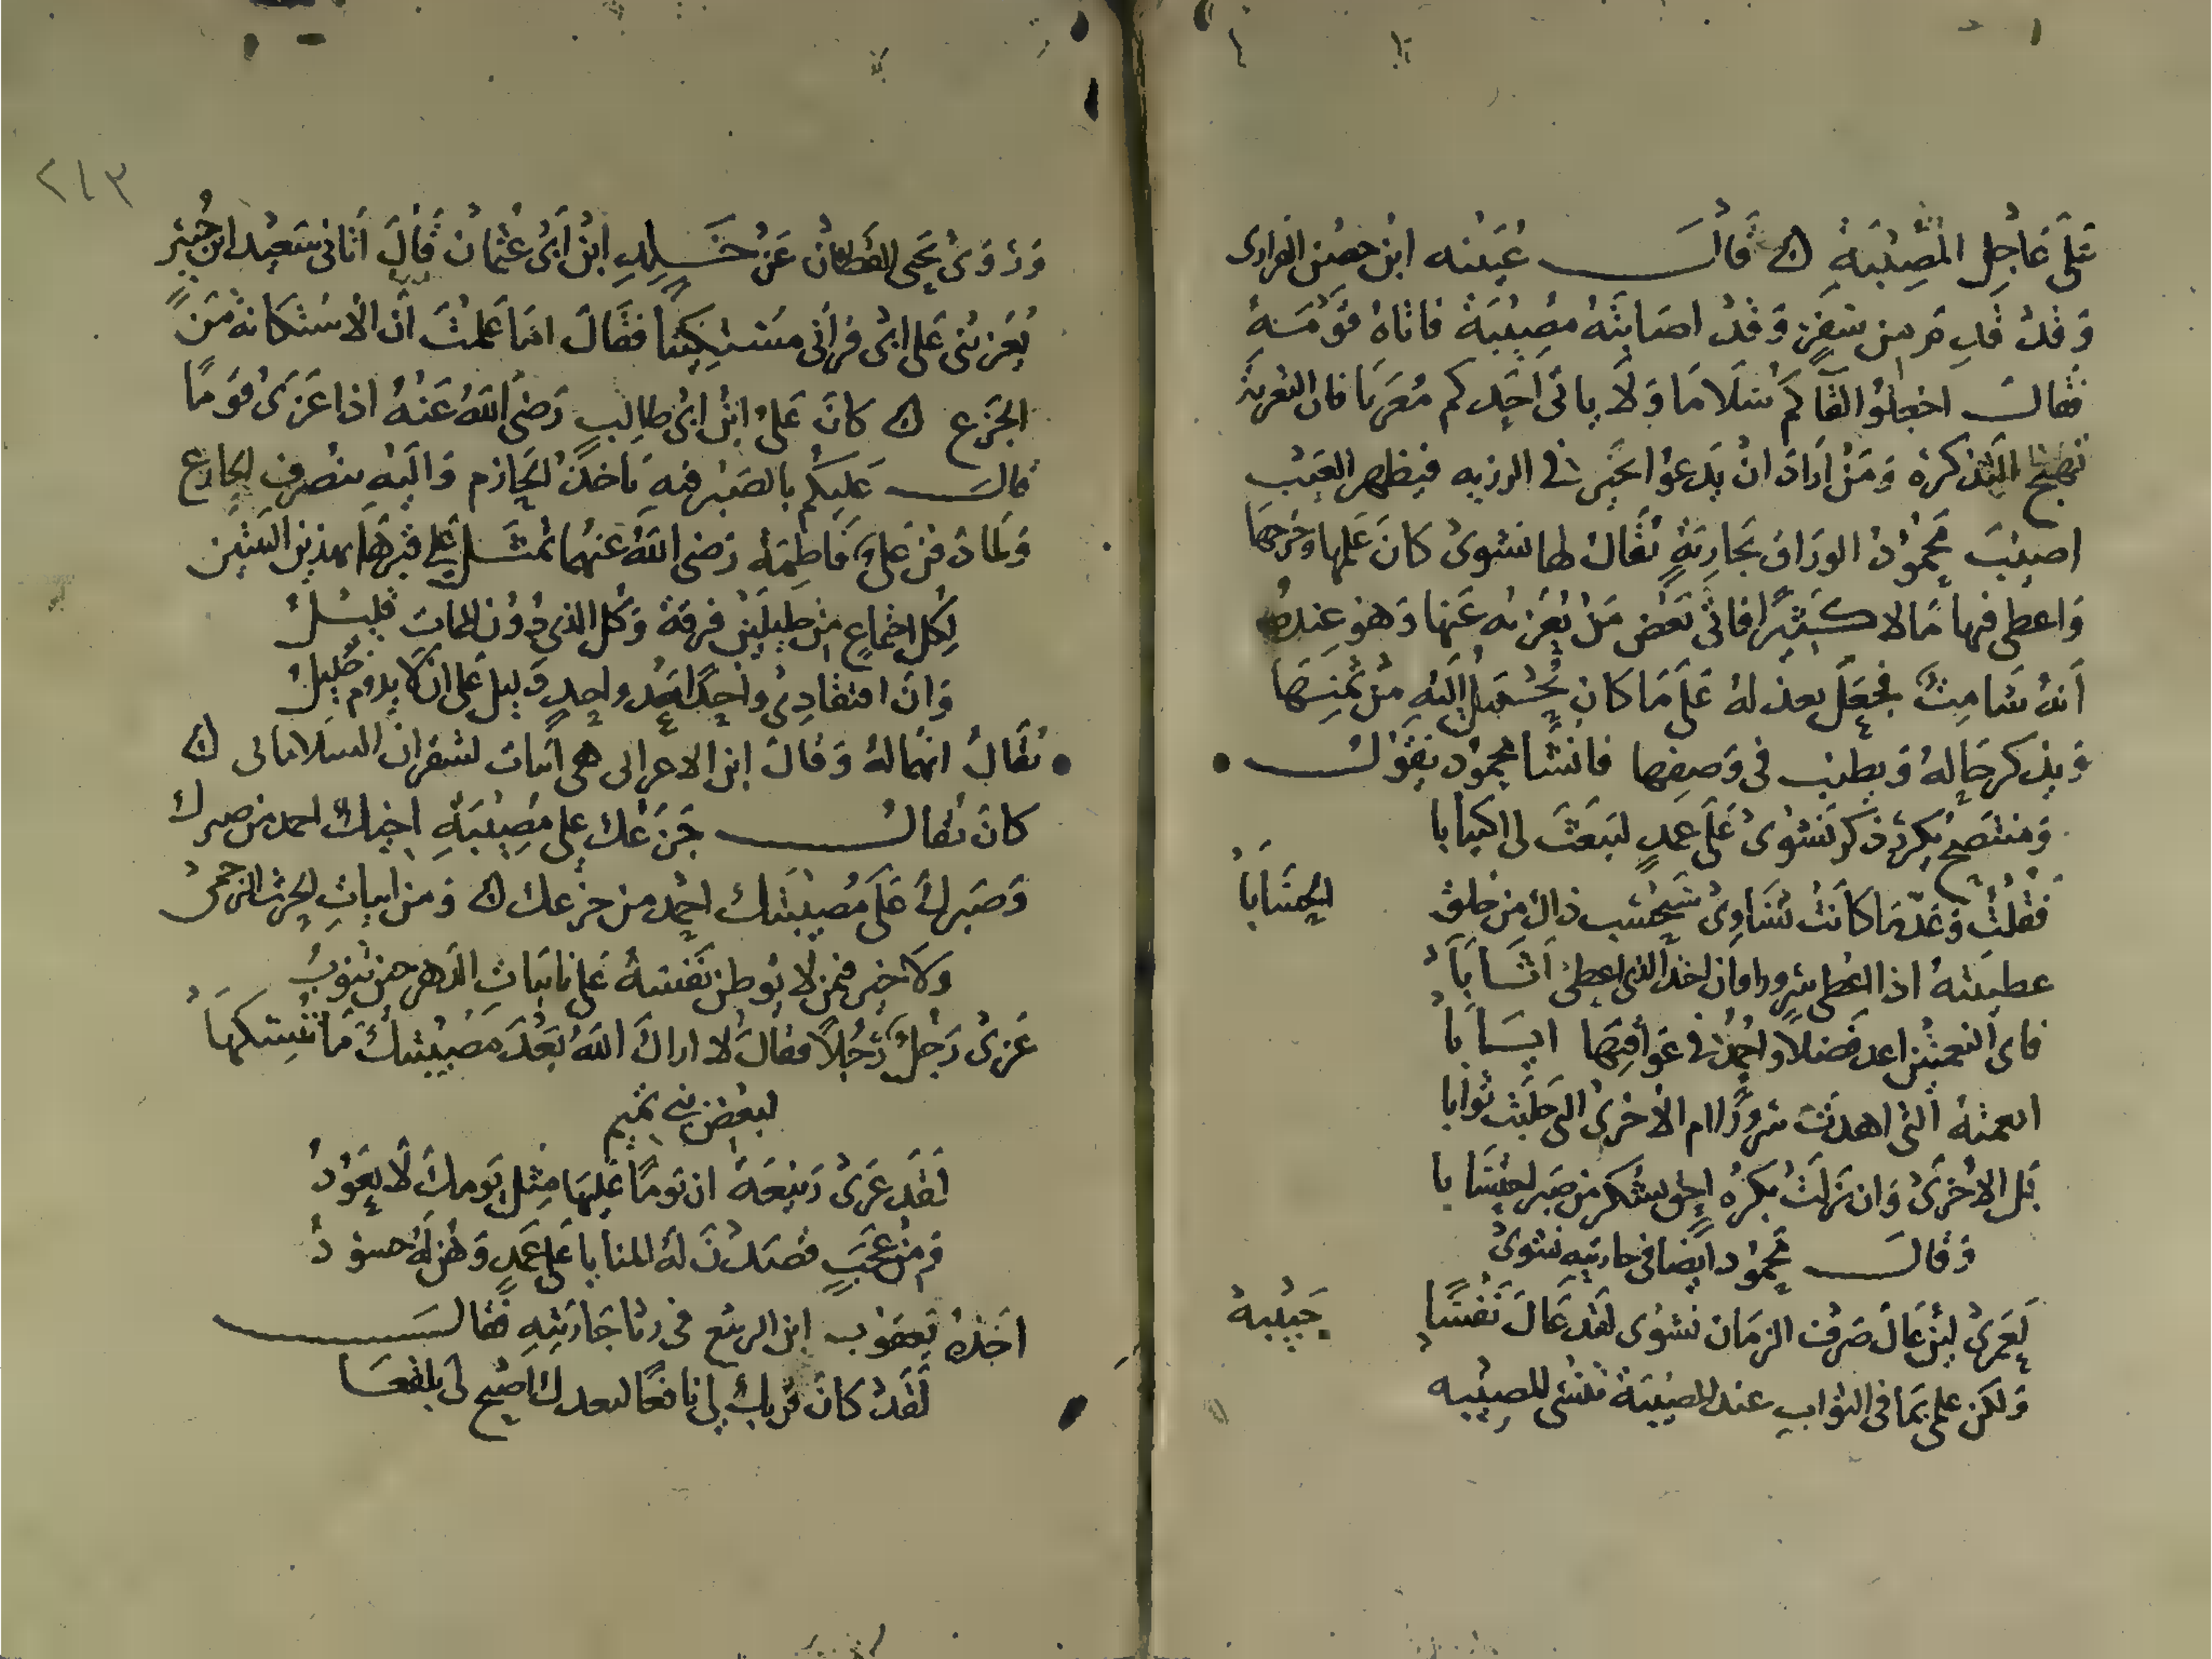 على عاجل المصيبة ه قالـــــت عيينه ابن حصن الفزارى
وقد قدم من سفر وقد اصابته مصيبة فاتاه قومه
فقالـــ اجعلوا لقاكم سلاما ولا ياتى احدكم معزيا فان التعزية
تهيج التذكرة ومن اراد ان يدعوا خير فى الرزيه فيظهر العيب
اصيب محمود الوراق بجارية يقال لها نشوى كان علمها وخرجها
واعطى فيها مالا كثيرا فاتى بعض من يعزيه عنها وهو عنده
انه شامت فجعل يعذله على ما كان يحتمل اليه من ثمنها
ويذكر جماله ويطنب فى وصفها فانشا محمود يقولـــــ
ومنتصح يكرر ذكر نشوى على عمد ليبعث لى اكتيابا
فقلت وعد ما كانت تساوى سيحسب ذاك من خلق الحسابا
عطيته اذا اعطى سرورا وان اخذ الذى اعطى اثابا
فاى النعمتين اعد فضلا واحمد فى عواقبها ايابا
انعمته التى اهدت سرورا ام الاخرى التى جلبت ثوابا
بل الاخرى وان نزلت بكره احق بشكر من صبر احتسابا
وقالــــ محمود ايضا فى جاريته نشوى
لعمرى لئن غال صرف الزمان نشوى لقد غال نفسا حبيبة
ولكن علمى بما فى الثواب عند المصيبة ينسى المصيبه
٢١٣
وروى يحيى القطان عن خـــلد ابن ابى عثمان قال اتانى سعيد ابن جبير
يعزينى على ابى فرآنى مستكينا فقال اما علمت ان الاستكانة من
الجزع ه كان على ابن ابى طالب رضى الله عنه اذا عزى قوما
قالـــــ عليكم بالصبر فبه ياخذ الحازم واليه ينصرف الجازع
ولما دفن على فاطمة رضى الله عنهما تمثـــل على قبرها بهذين البيتين
لكل اجتماع من خليلين فرقة وكل الذى دون الممات قليـــل
وان افتقادى واحدا بعد واحد دليل على ان لا يدوم خليل
يقال انهما له وقال ابن الاعرابى هى ابيات لشقران السلامانى ه
كان يقالــــــ جزعك على مصيبة اخيك احمد من صبرك
وصبرك على مصيبتك احمد من جزعك ه ومن ابيات الحرث الجرمى
ولا خير فيمن لا يوطن نفسه على نايبات الدهر حين تنوب
عزى رجل رجلا فقال لا اراك الله بعد مصيبتك ما ينسيكها
لبعض بنى تميم
لقد عزى ربيعة ان يوما عليها مثل يومك لا يعود
ومن عجب قصدن له المنايا على عمد وهن له جنود
اخذه يعقوب ابن الربيع فى رثا جاريته فقالــــــــ
لقد كان قربك لى نافعا لبعدك اصبح لى انفعـــا